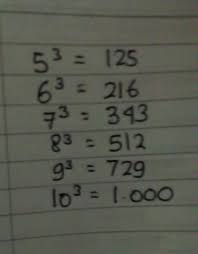 5³ = 125
6³ = 216
7³ = 343
8³ = 512
9³ = 729
10³ = 1.000